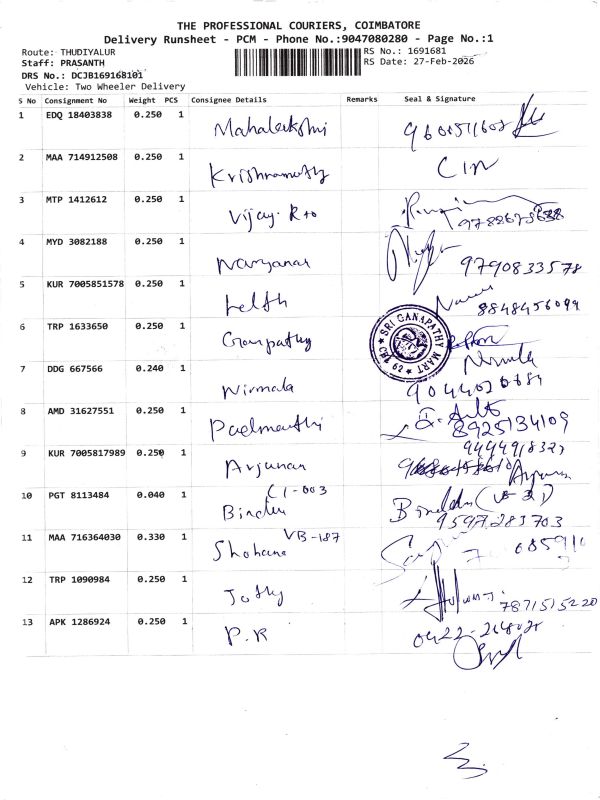 THE PROFESSIONAL COURIERS, COIMBATORE
Delivery Runsheet - PCM - Phone No.:9047080280 - Page No.:1
Route: THUDIYALUR
RS No.: 1691681
Staff: PRASANTH
RS Date: 27-Feb-2026
DRS No.: DCJB169168101
Vehicle: Two Wheeler Delivery
S No Consignment No Weight PCS Consignee Details Remarks Seal & Signature
1 EDQ 18403838 0.250 1 Mahalakshmi
2 MAA 714912508 0.250 1 Krishnamurthy
3 MTP 1412612 0.250 1 Vijay.
4 MYD 3082188 0.250 1 Narayanan 9790833578
5 KUR 7005851578 0.250 1 8848456099
6 TRP 1633650 0.250 1 Ganpathy
SRI GANAPATHY MART
7 DDG 667566 0.240 1 Nirmala Nirmala
8 AMD 31627551 0.250 1 8925134109
9 KUR 7005817989 0.250 1 Arjunan
10 PGT 8113484 0.040 1 Bindu C1-003 Bindu 9597283703
11 MAA 716364030 0.330 1 Shobana VB-187
12 TRP 1090984 0.250 1 Jothy 7871515220
13 APK 1286924 0.250 1 P.R